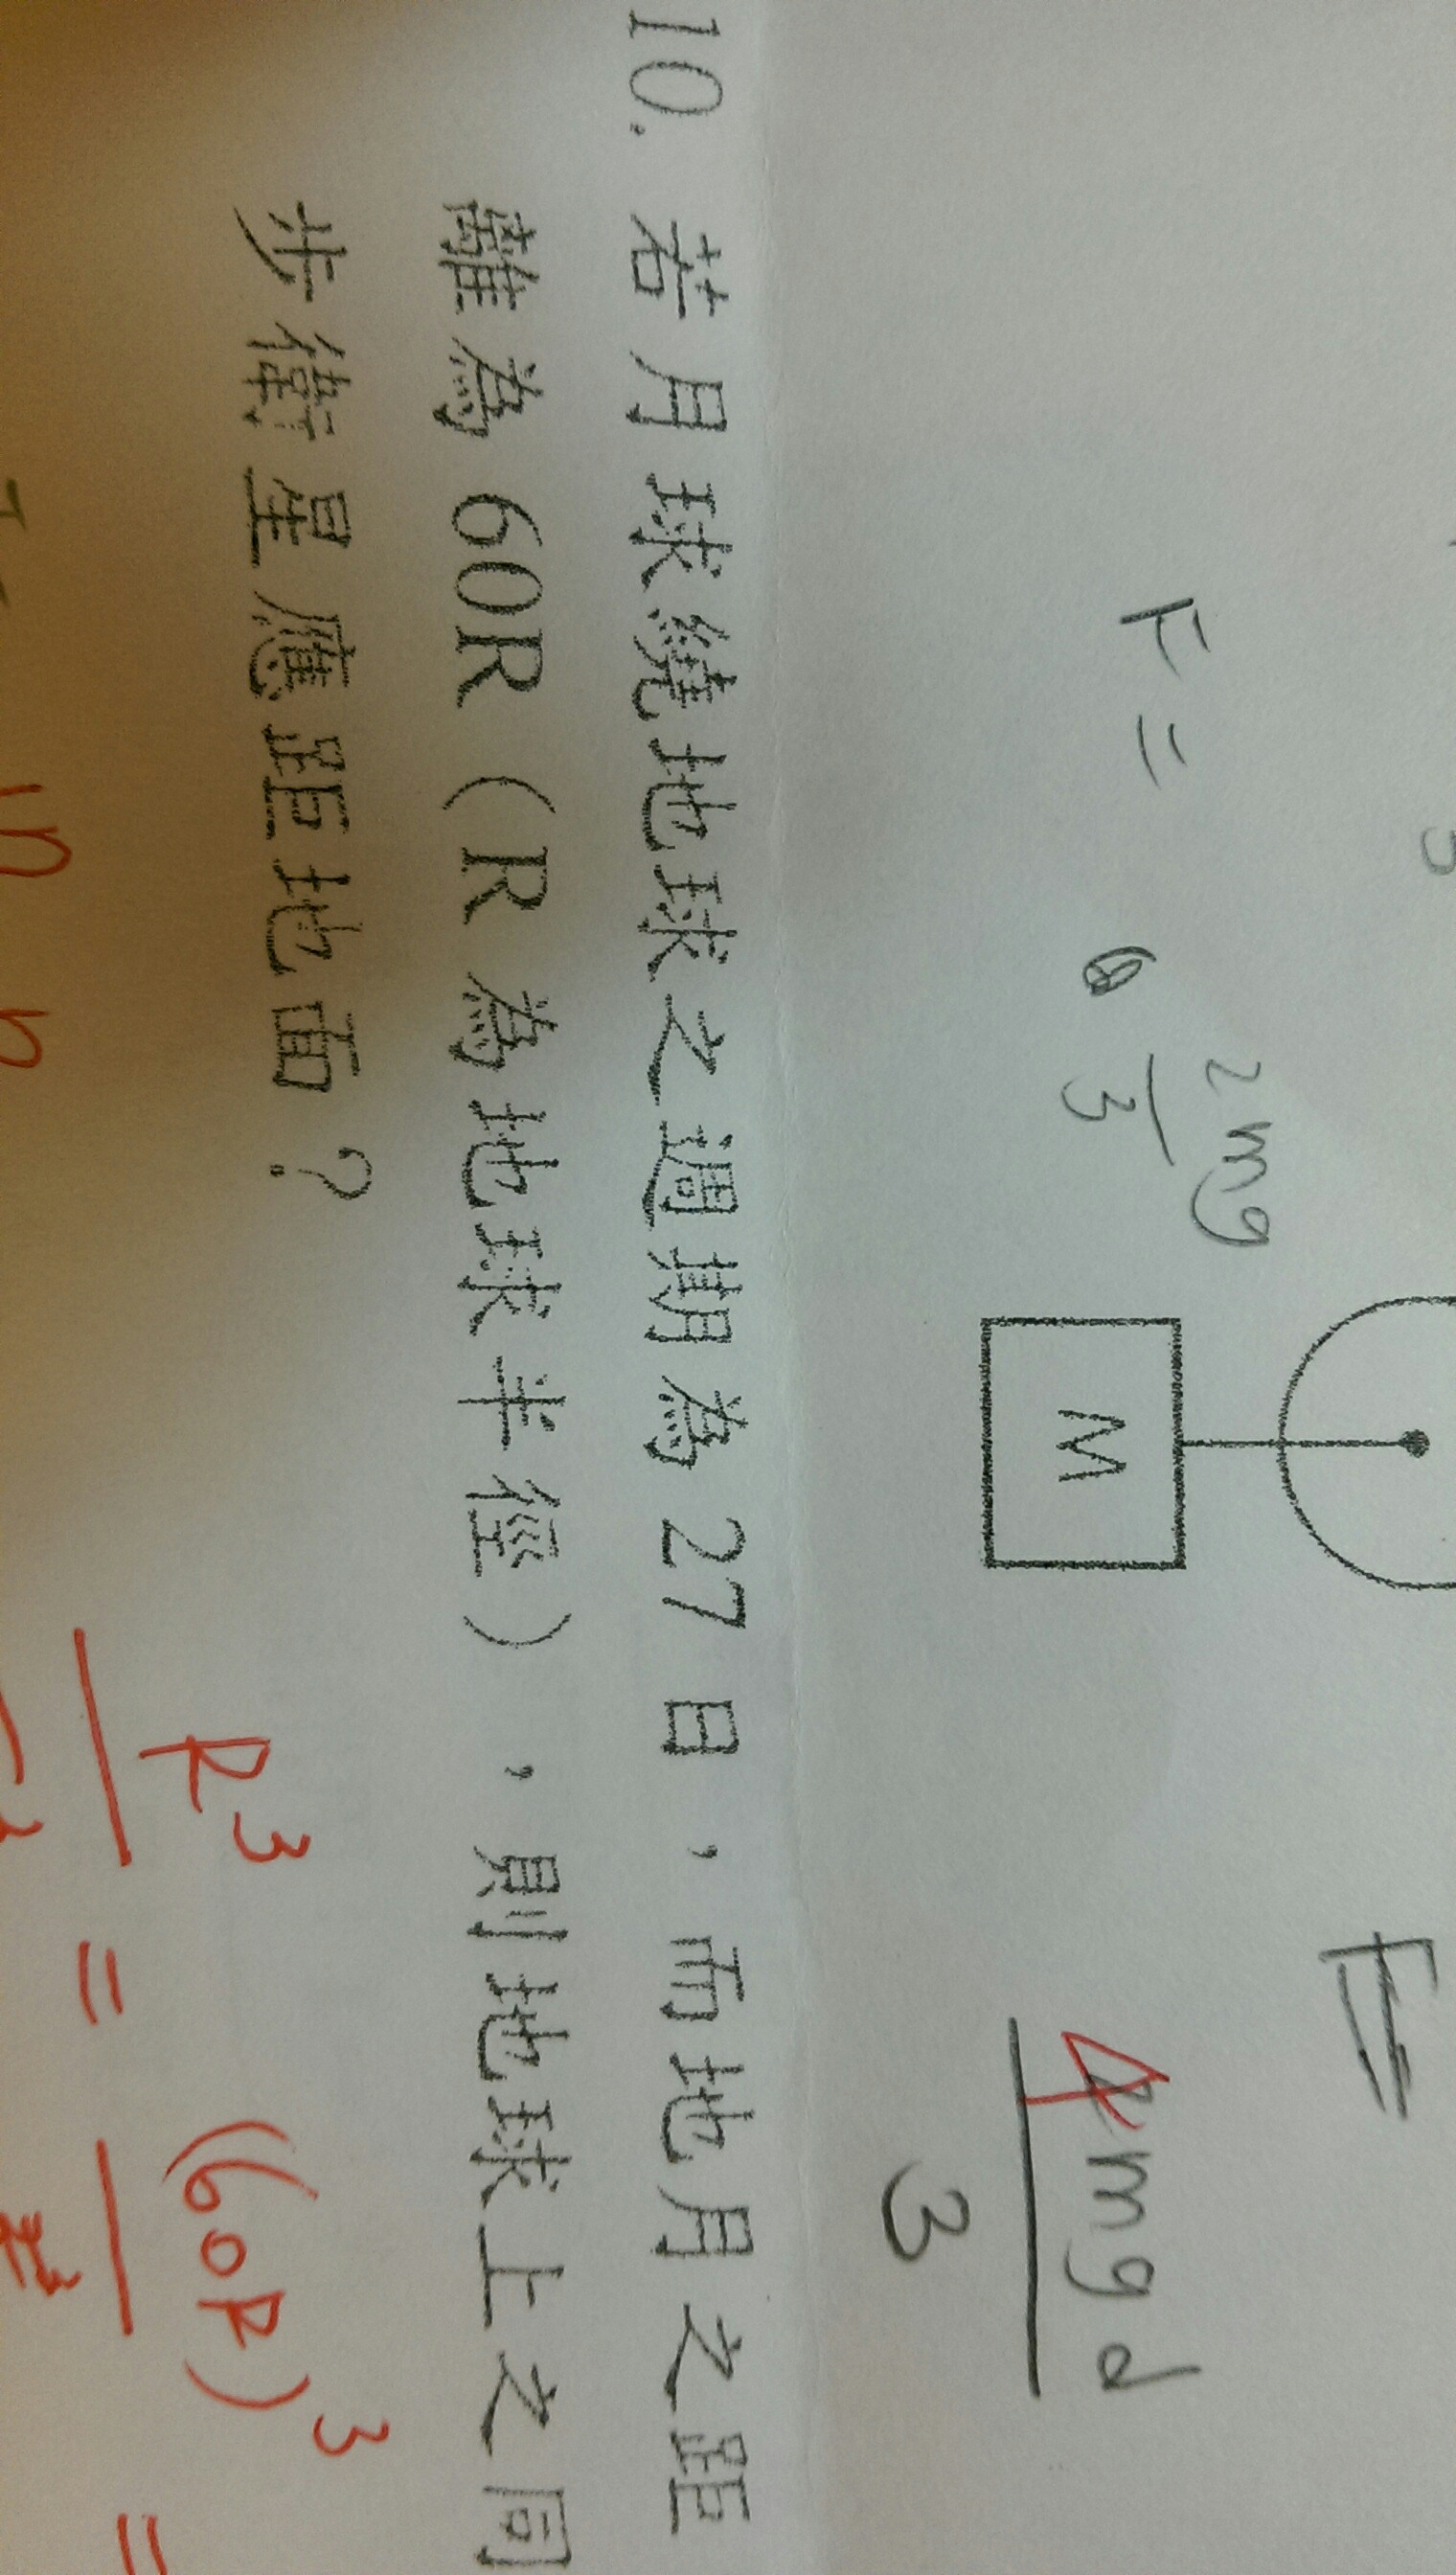 F = 2mg
3
M
4mgd
3
10. 若月球繞地球之週期為 27 日，而地月之距
離為 60R（R 為地球半徑），則地球上之同
步衛星應距地面？
R³ = (60R)³ =